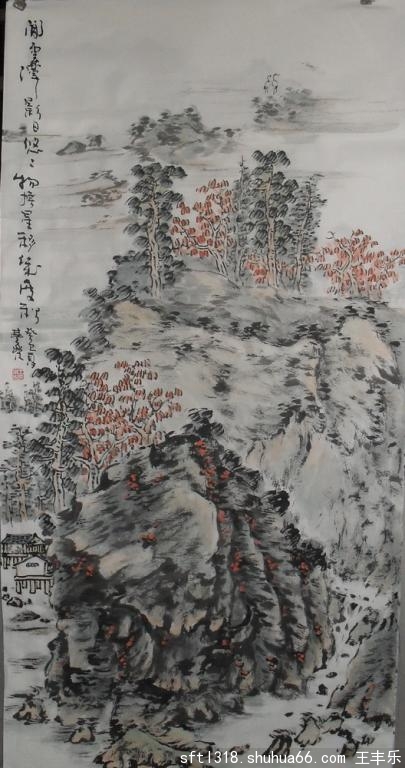 閒雲潭影日悠々物换星移幾度秋
癸巳夏
sft1318.shuhua66.com 王丰乐